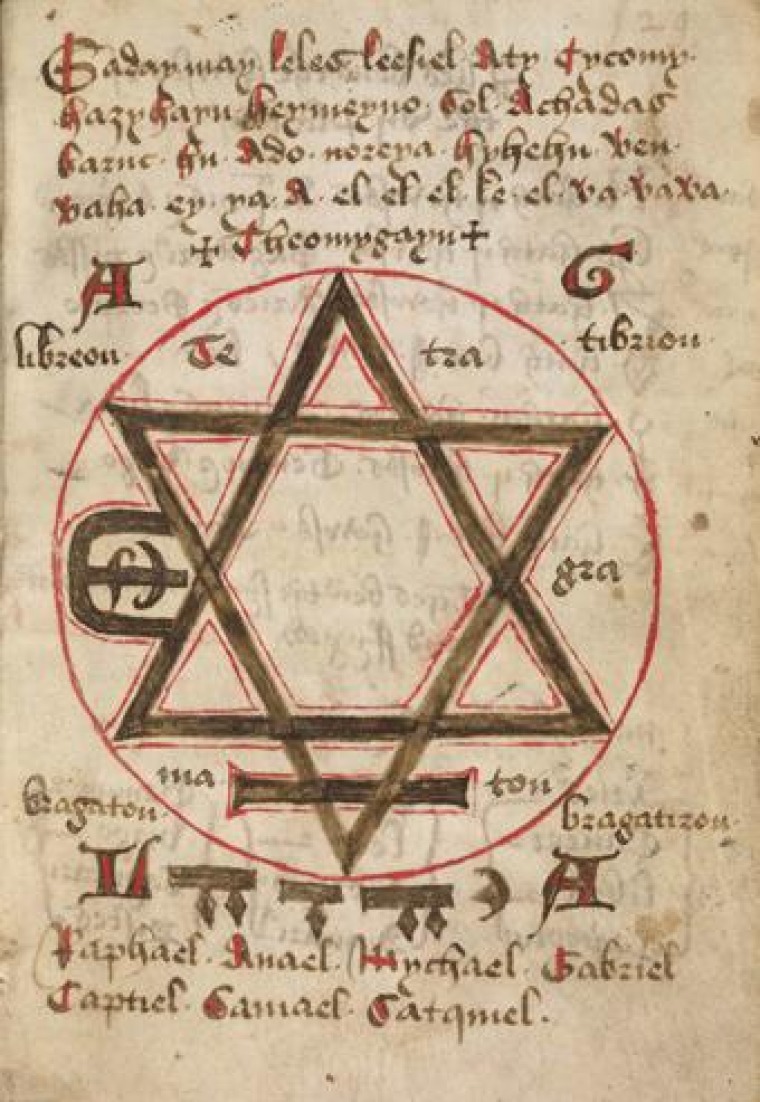 Saday may keles keesiel Aty Tycomy
hazy hayn heymeyno Sol Achadas
baruc hu Ado noreya hyhehu ven
vaha ey ya A el el el ke el va vava
+ Theomygayn +
A G
libreon Te tra tibrion
gra
ma ton
bragaton bragatiron
L A
Raphael Anael Mychael Gabriel
Captiel Samael Satquiel